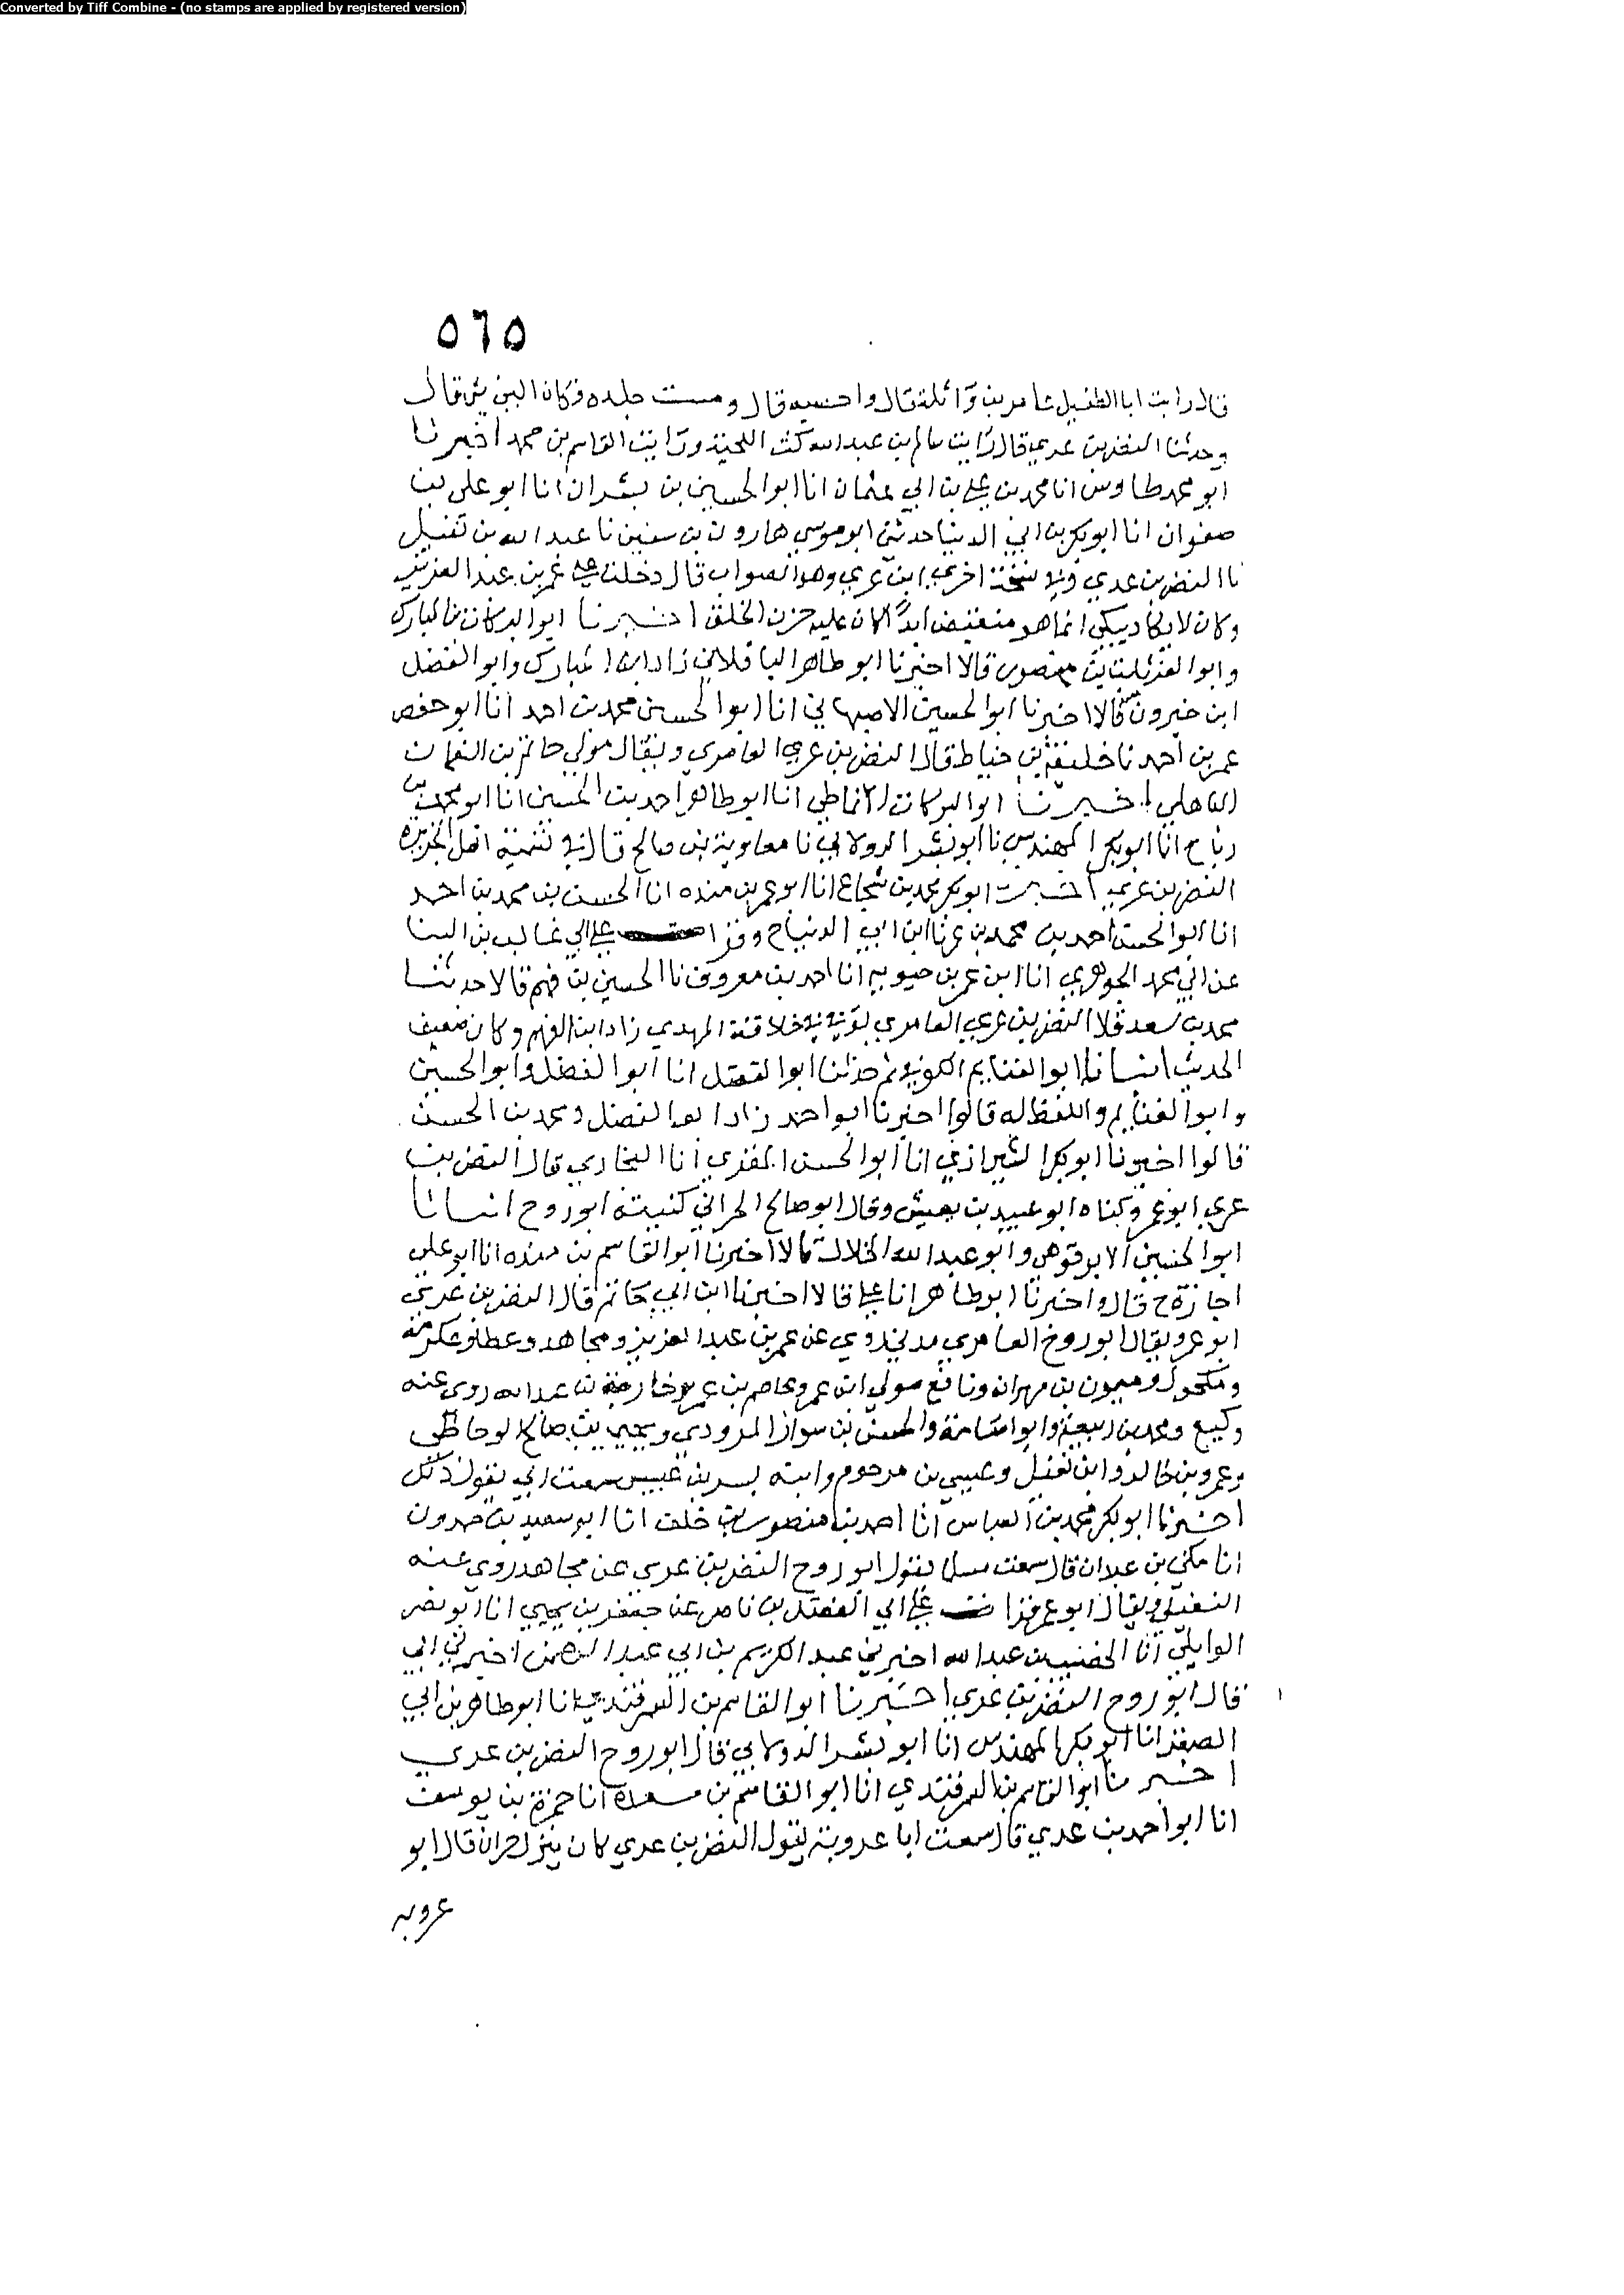 Converted by Tiff Combine - (no stamps are applied by registered version)
٥٦٥
قال رايت ابا الطفيل عامر بن واثلة قال واحسبه قال ومست جلده فكان الين شئ قال
وحدثنا النضر بن عربي قال رايت سالم بن عبد الله كث اللحية ورايت القاسم بن محمد اخبرنا
ابو محمد طاوس انا محمد بن علي بن ابي عثمان انا ابو الحسين بن بشران انا ابو علي بن
صفوان انا ابو بكر بن ابي الدنيا حدثني ابو موسي هارون بن سفين نا عبد الله بن نفيل
نا النضر بن عدي وفي نسخة اخري ابن عربي وهو الصواب قال دخلت علي عمر بن عبد العزيز
وكان لا يكاد يبكي انما هو منتفض ابدًا كان عليه حزن الخلق اخبرنا ابو البركات بن المبارك
وابو العز ثابت بن منصور قالا اخبرنا ابو طاهر الباقلاني زاد ابن المبارك وابو الفضل
ابن خيرون قالا اخبرنا ابو الحسين الاصبهاني انا ابو الحسين محمد بن احمد انا ابو حفص
عمر بن احمد نا خليفة بن خياط قال النضر بن عربي العامري ويقال مولي حاتم بن النعمان
الباهلي اخبرنا ابو البركات الانماطي انا ابو طاهر احمد بن الحسين انا ابو محمد بن
رباح انا ابو بكر المهندس نا ابو بشر الدولابي نا معاوية بن صالح قال في تسمية اهل الجزيرة
النضر بن عربي اخبرنا ابو بكر محمد بن شجاع انا ابو عمر بن منده انا الحسن بن محمد بن احمد
انا ابو الحسن احمد بن محمد بن عمر نا ابن ابي الدنيا ح وقرا علي ابي غالب بن البنا
عن ابي محمد الجوهري انا ابن عمر بن حيويه انا احمد بن معروف نا الحسين بن فهم قالا حدثنا
محمد بن سعد قالا النضر بن عربي العامري توفي في خلافة المهدي زاد ابن الفهم وكان ضعيف
الحديث انبانا ابو الغنايم الكوفي ثم حدثنا ابو الفضل انا ابو الفضل وابو الحسين
وابو الغنايم واللفظ له قالوا اخبرنا ابو احمد زاد ابو الفضل ومحمد بن الحسن
قالوا اخبرنا ابو بكر الشيرازي انا ابو الحسن المقري انا البخاري قال النضر بن
عربي ابو عمر وكناه ابو عبيد بن يعيش وقال ابو صالح الحراني كنيته ابو روح انبانا
ابو الحسين الابرقوهي وابو عبد الله الخلال قالا اخبرنا ابو القاسم بن منده انا ابو علي
اجازة ح قال واخبرنا ابو طاهر انا علي قالا اخبرنا ابن ابي حاتم قال النضر بن عربي
ابو عمر ويقال ابو روح العامري مدني روي عن عمر بن عبد العزيز ومجاهد وعطا وعكرمة
ومكحول وميمون بن مهران ونافع مولي ابن عمر وعاصم بن عمر وخارجة بن عبد الله روي عنه
وكيع ومحمد بن ربيعة وابو اسامة والحسن بن سوار المرودي ويحيي بن صالح الوحاظي
وعمرو بن خالد وابن نفيل وعبيس بن مرحوم وابنه بسر بن عبيس سمعت ابي يقول ذلك
اخبرنا ابو بكر محمد بن العباس انا احمد بن منصور بن خلف انا ابو سعيد بن حمدون
انا مكي بن عبدان قال سمعت مسلما يقول ابو روح النضر بن عربي عن مجاهد روي عنه
النفيلي ويقال ابو عمر قرات علي ابي الفضل بن ناصر عن جعفر بن يحيي انا ابو نصر
الوايلي انا الخصيب بن عبد الله اخبرني عبد الكريم بن ابي عبد الرحمن اخبرني ابي
قال ابو روح النضر بن عدي اخبرنا ابو القاسم بن السمرقندي انا ابو طاهر بن ابي
الصقر انا ابو بكر المهندس انا ابو بشر الدولابي قال ابو روح النضر بن عدي
اخبرنا ابو القاسم بن السمرقندي انا ابو القاسم بن مسعدة انا حمزة بن يوسف
انا ابو احمد بن عدي قال سمعت ابا عروبة يقول النضر بن عدي كان ينزل حران قال ابو
عروبه